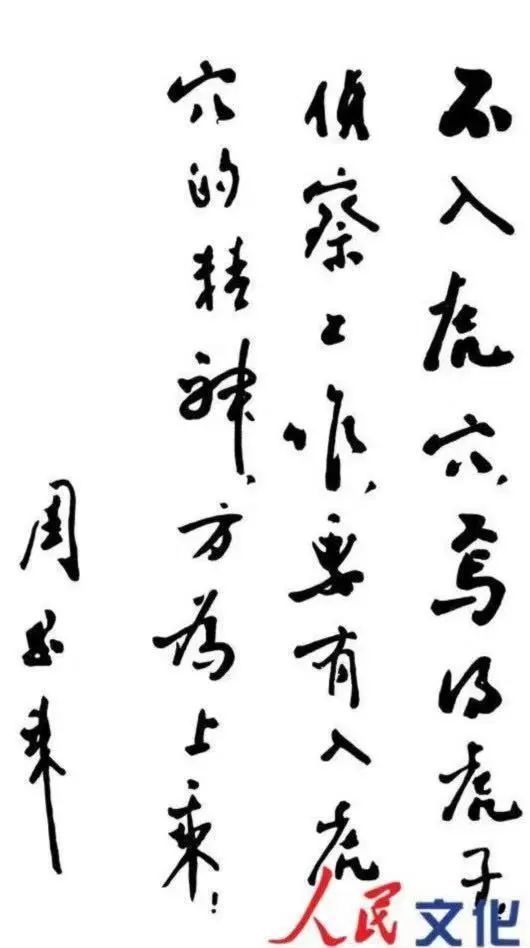 不入虎穴,焉得虎子!
侦察工作,要有入虎
穴的精神,方为上乘!
周恩来
人民文化